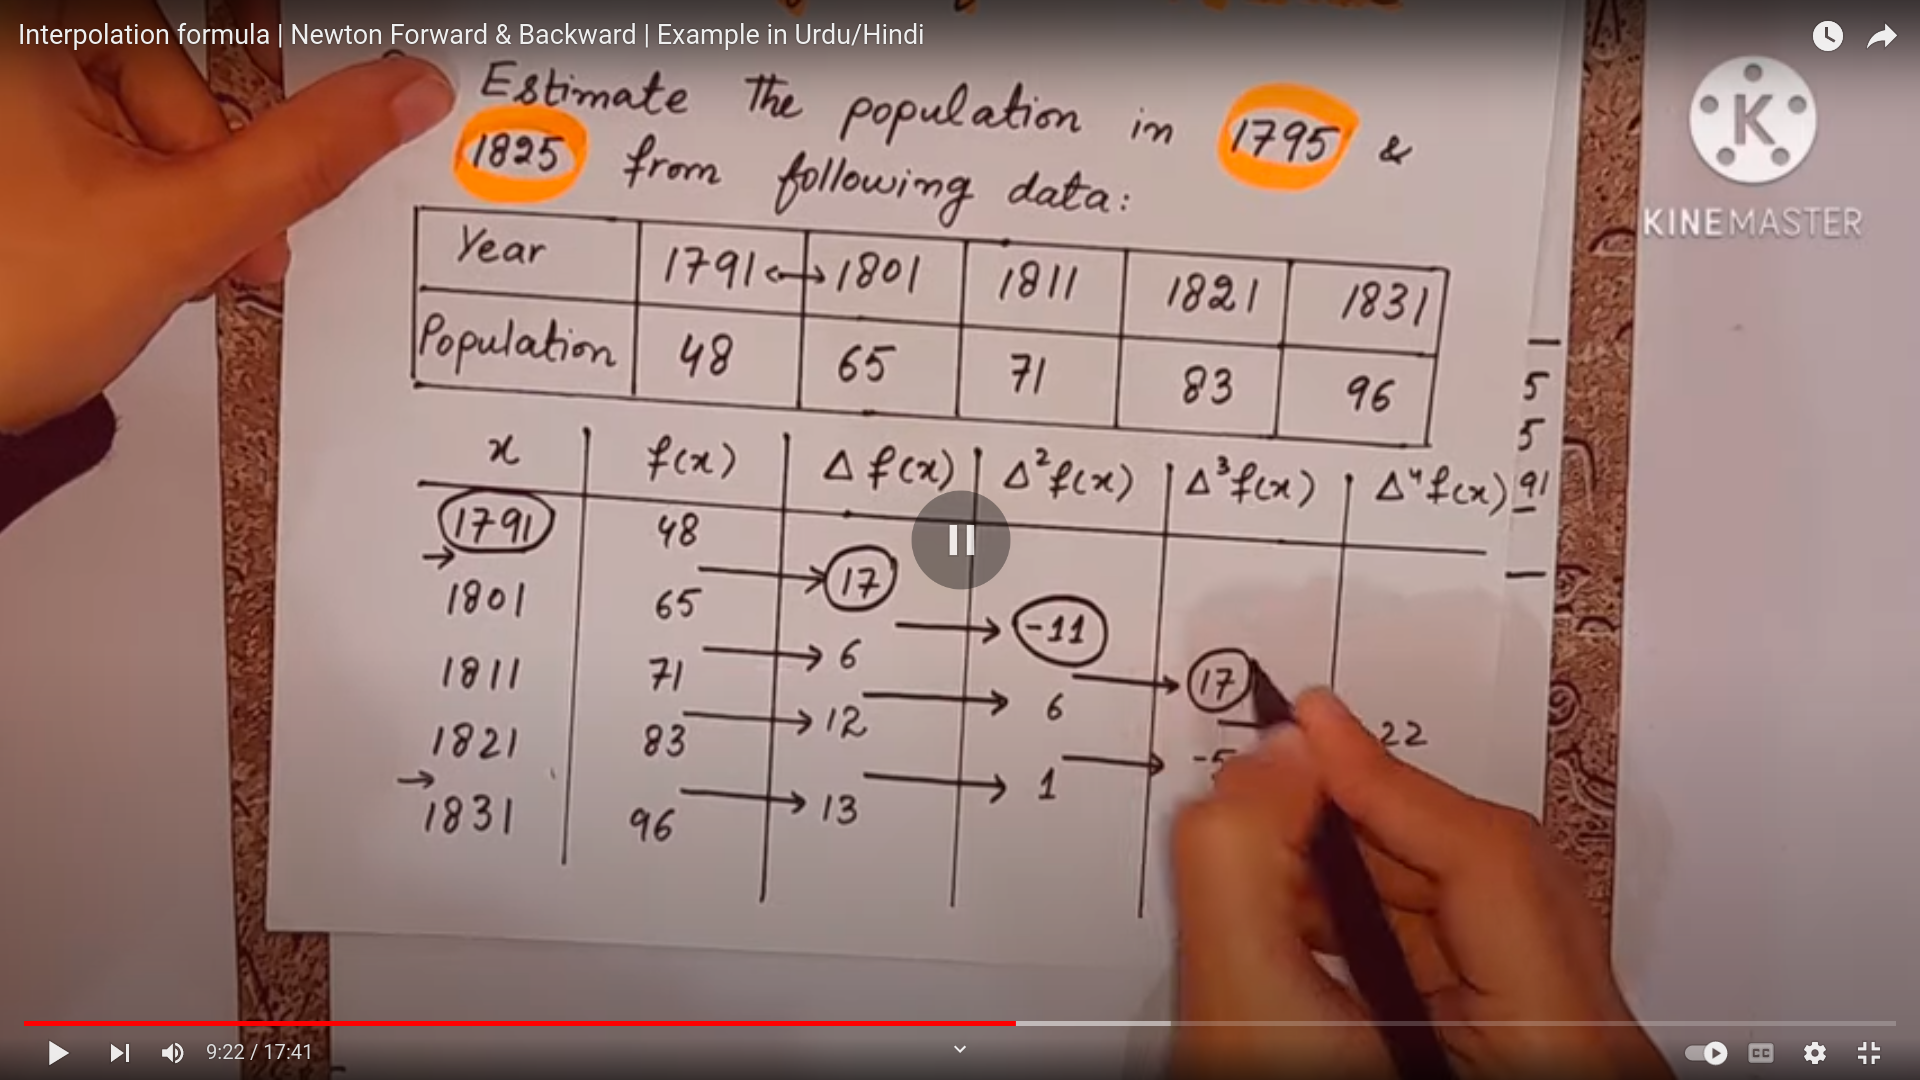 Interpolation formula | Newton Forward & Backward | Example in Urdu/Hindi
Estimate the population in 1795 &
1825 from following data:
K
KINEMASTER
Year 1791 ↔ 1801 1811 1821 1831
Population 48 65 71 83 96
5
5
91
x f(x) Δf(x) Δ²f(x) Δ³f(x) Δ⁴f(x)
1791 48
→ 17
1801 65 → -11
→ 6 → 17
1811 71 → 6 22
→ 12 → -5
1821 83 → 1
→ 13
1831 96
9:22 / 17:41
CC